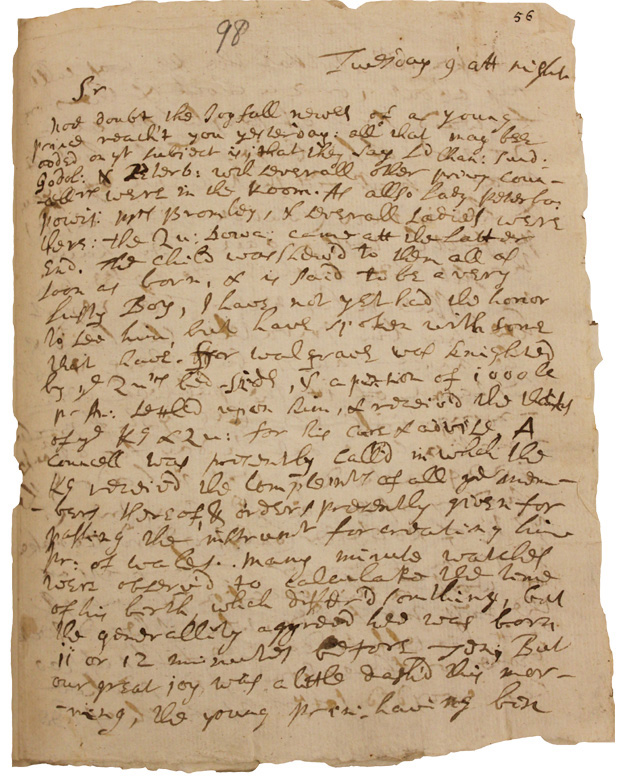 56
98
Tuesday 9 att night
Sr
noe doubt the Joyfull newes of a young
prince reach't you yesterday: all that may bee
added on yt subject is, that they say Ld Chan: Sund.
Godol: & Peterb: wth severall other privy coun-
were in the Room. As also Lady Peterbo:
powis: mrs Bromley, & severall Ladies were
there: the Qu: Dowa: came att the latter
End. The child was shew'd to them all as
soon as born, & is said to be a very
lusty Boy, I have not yet had the honor
to see him, but have spoken with some
that have. walgrave was knighted
by ye Qu'ns bed-side, & a pention of 1000 le
pr An: settled upon him, & received the thanks
of ye Kg & Qu: for his care & advise A
Councell was presently called in which the
Kg receivd the Complemts of all ye mem-
bers thereof, & orders presently given for
passing the instrumt for creating him
pr: of wales. many minute watches
were observed to calculate the time
of his birth which differ'd somthing, but
the generallity agreed hee was born
11 or 12 minutes before ten; But
our great joy was a little dash'd this mor-
ning, the young prin: having ben